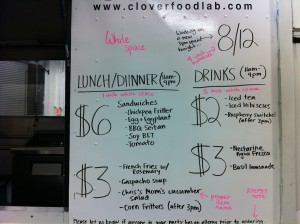 www.cloverfoodlab.com
White
space
8/12
LUNCH/DINNER (4am-
4pm)
1 inch white space
$6
Sandwiches
- Chickpea Fritter
- Egg + Eggplant
- BBQ Seitan
- Soy BLT
- Tomato
$3
- French Fries w/
Rosemary
- Gazpacho soup
- Chris's Mom's cucumber
salad
- Corn Fritters (after 3pm)
DRINKS (11am-
4pm)
1 inch white space
$2
- Iced tea
- Iced hibiscus
- Raspberry Switchel
(after 2pm)
$3
- Nectarine
Agua Fresca
- Basil lemonade
Please let us know if anyone in your party has an allergy prior to ordering